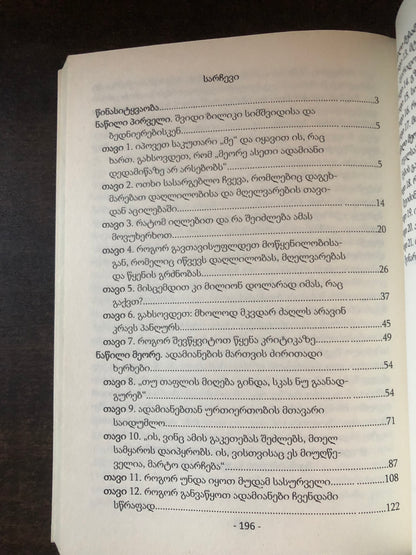 სარჩევი
წინასიტყვაობა....................................................3
ნაწილი პირველი. შვიდი ბილიკი სიმშვიდისა და
ბედნიერებისკენ..............................................5
თავი 1. იპოვეთ საკუთარი „მე“ და იყავით ის, რაც
ხართ. გახსოვდეთ, რომ „მეორე ასეთი ადამიანი
დედამიწაზე არ არსებობს“..................................5
თავი 2. ოთხი სასარგებლო ჩვევა, რომლებიც დაგეხ-
მარებათ დაღლილობისა და მღელვარების თავი-
დან აცილებაში...............................................14
თავი 3. რატომ იღლებით და რა შეიძლება ამას
მოვუხერხოთ..................................................20
თავი 4. როგორ გავთავისუფლდეთ მოწყენილობისა-
გან, რომელიც იწვევს დაღლილობას, მღელვარებას
და წყენის გრძნობას.........................................26
თავი 5. მისცემდით კი მილიონ დოლარად იმას, რაც
გაქვთ?.........................................................37
თავი 6. გახსოვდეთ: მხოლოდ მკვდარ ძაღლს არავინ
კრავს პანღურს...............................................45
თავი 7. როგორ შევწყვიტოთ წყენა კრიტიკაზე..........49
ნაწილი მეორე. ადამიანების მართვის ძირითადი
ხერხები........................................................54
თავი 8. „თუ თაფლის მიღება გინდა, სკას ნუ გაანად-
გურებ“.........................................................54
თავი 9. ადამიანებთან ურთიერთობის მთავარი
საიდუმლო....................................................71
თავი 10. „ის, ვინც ამის გაკეთებას შეძლებს, მთელ
სამყაროს დაიპყრობს. ის, ვისთვისაც ეს მიუღწე-
ველია, მარტო დარჩება“...................................87
თავი 11. როგორ უნდა იყოთ მუდამ სასურველი......108
თავი 12. როგორ განვაწყოთ ადამიანები ჩვენდამი
სწრაფად.....................................................122
- 196 -